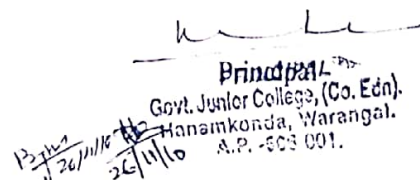 Principal
Govt. Junior College, (Co. Edn).
Hanamkonda, Warangal.
A.P. -506 001.
26/11/10
26/11/10